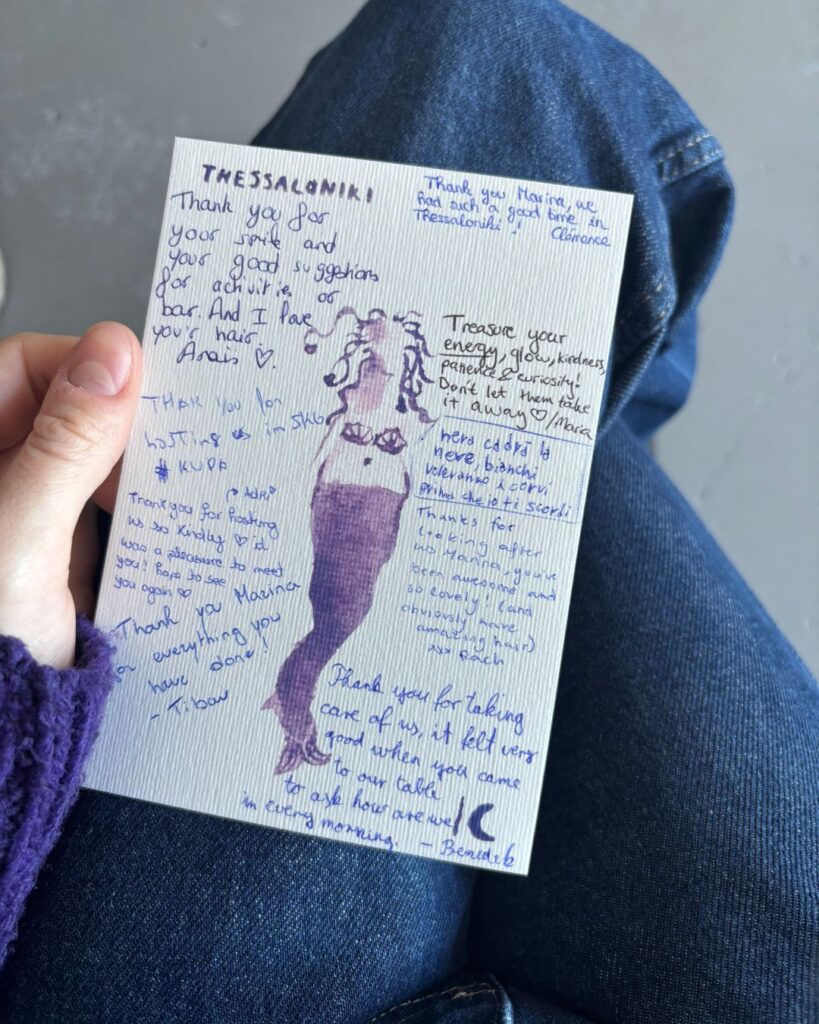 THESSALONIKI
Thank you for
your smile and
your good suggestions
for activities or
bar. And I love
your hair.
Anais ♡.
Thank you Marina, we
had such a good time in
Thessaloniki! Clémence
Treasure your
energy, glow, kindness,
patience & curiosity!
Don't let them take
it away ♡/Maria
THANK YOU for
hosting us in SKG
# KUPA
nera cadrà la
neve, bianchi
voleranno i corvi
prima che io ti scordi
Thank you for hosting
us so kindly ♡ it
was a pleasure to meet
you! hope to see
you again ♡
Thanks for
looking after
us Marina, you've
been awesome and
so lovely! (and
obviously have
amazing hair)
xxx Rach
Thank you Marina
for everything you
have done!
- Tibor
Thank you for taking
care of us, it felt very
good when you came
to our table
to ask how are we
in every morning. - Benedek